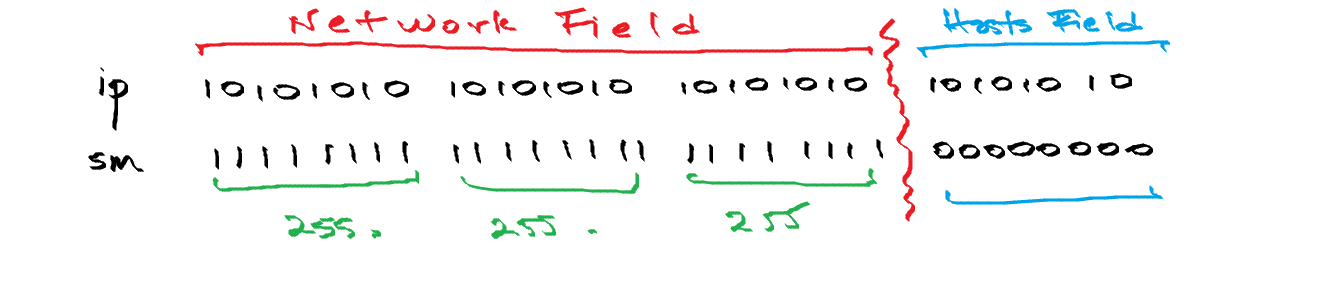 Network Field Hosts Field
ip 10101010 10101010 10101010 10101010
sm 11111111 11111111 11111111 00000000
255. 255. 255